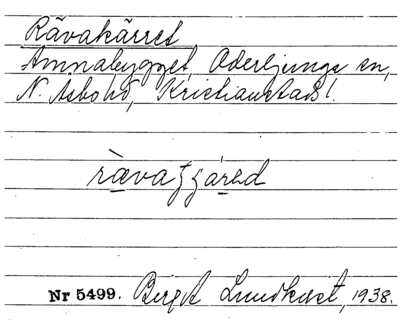 Rävakärret
Annabygget, Oderljunga sn,
N. Åsbo hd, Kristianstads l.
ràvaʒʒáred
Nr 5499. Bengt Lundkvist, 1938.